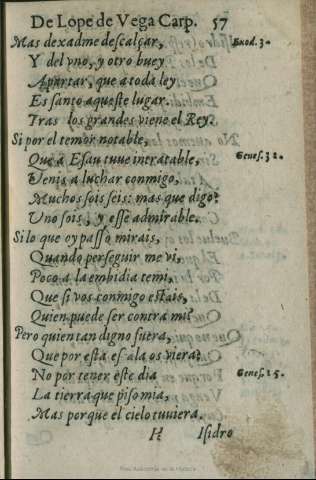 De Lope de Vega Carp. 57
Mas dexadme descalçar, Exod. 3.
Y del vno, y otro buey
Apartar, que a toda ley
Es santo aqueste lugar.
Tras los grandes viene el Rey.
Si por el temor notable,
Que à Esau tuue intratable, Genes. 32.
Venis a luchar conmigo,
Muchos sois seis: mas que digo?
Uno sois, y esse admirable.
Si lo que oy passò mirais,
Quando perseguir me vi,
Poco a la embidia temi,
Que si vos conmigo estais,
Quien puede ser contra mi?
Pero quien tan digno fuera,
Que por esta escala os viera?
No por tener este dia Genes. 15.
La tierra que piso mia,
Mas porque el cielo tuuiera.
H Isidro